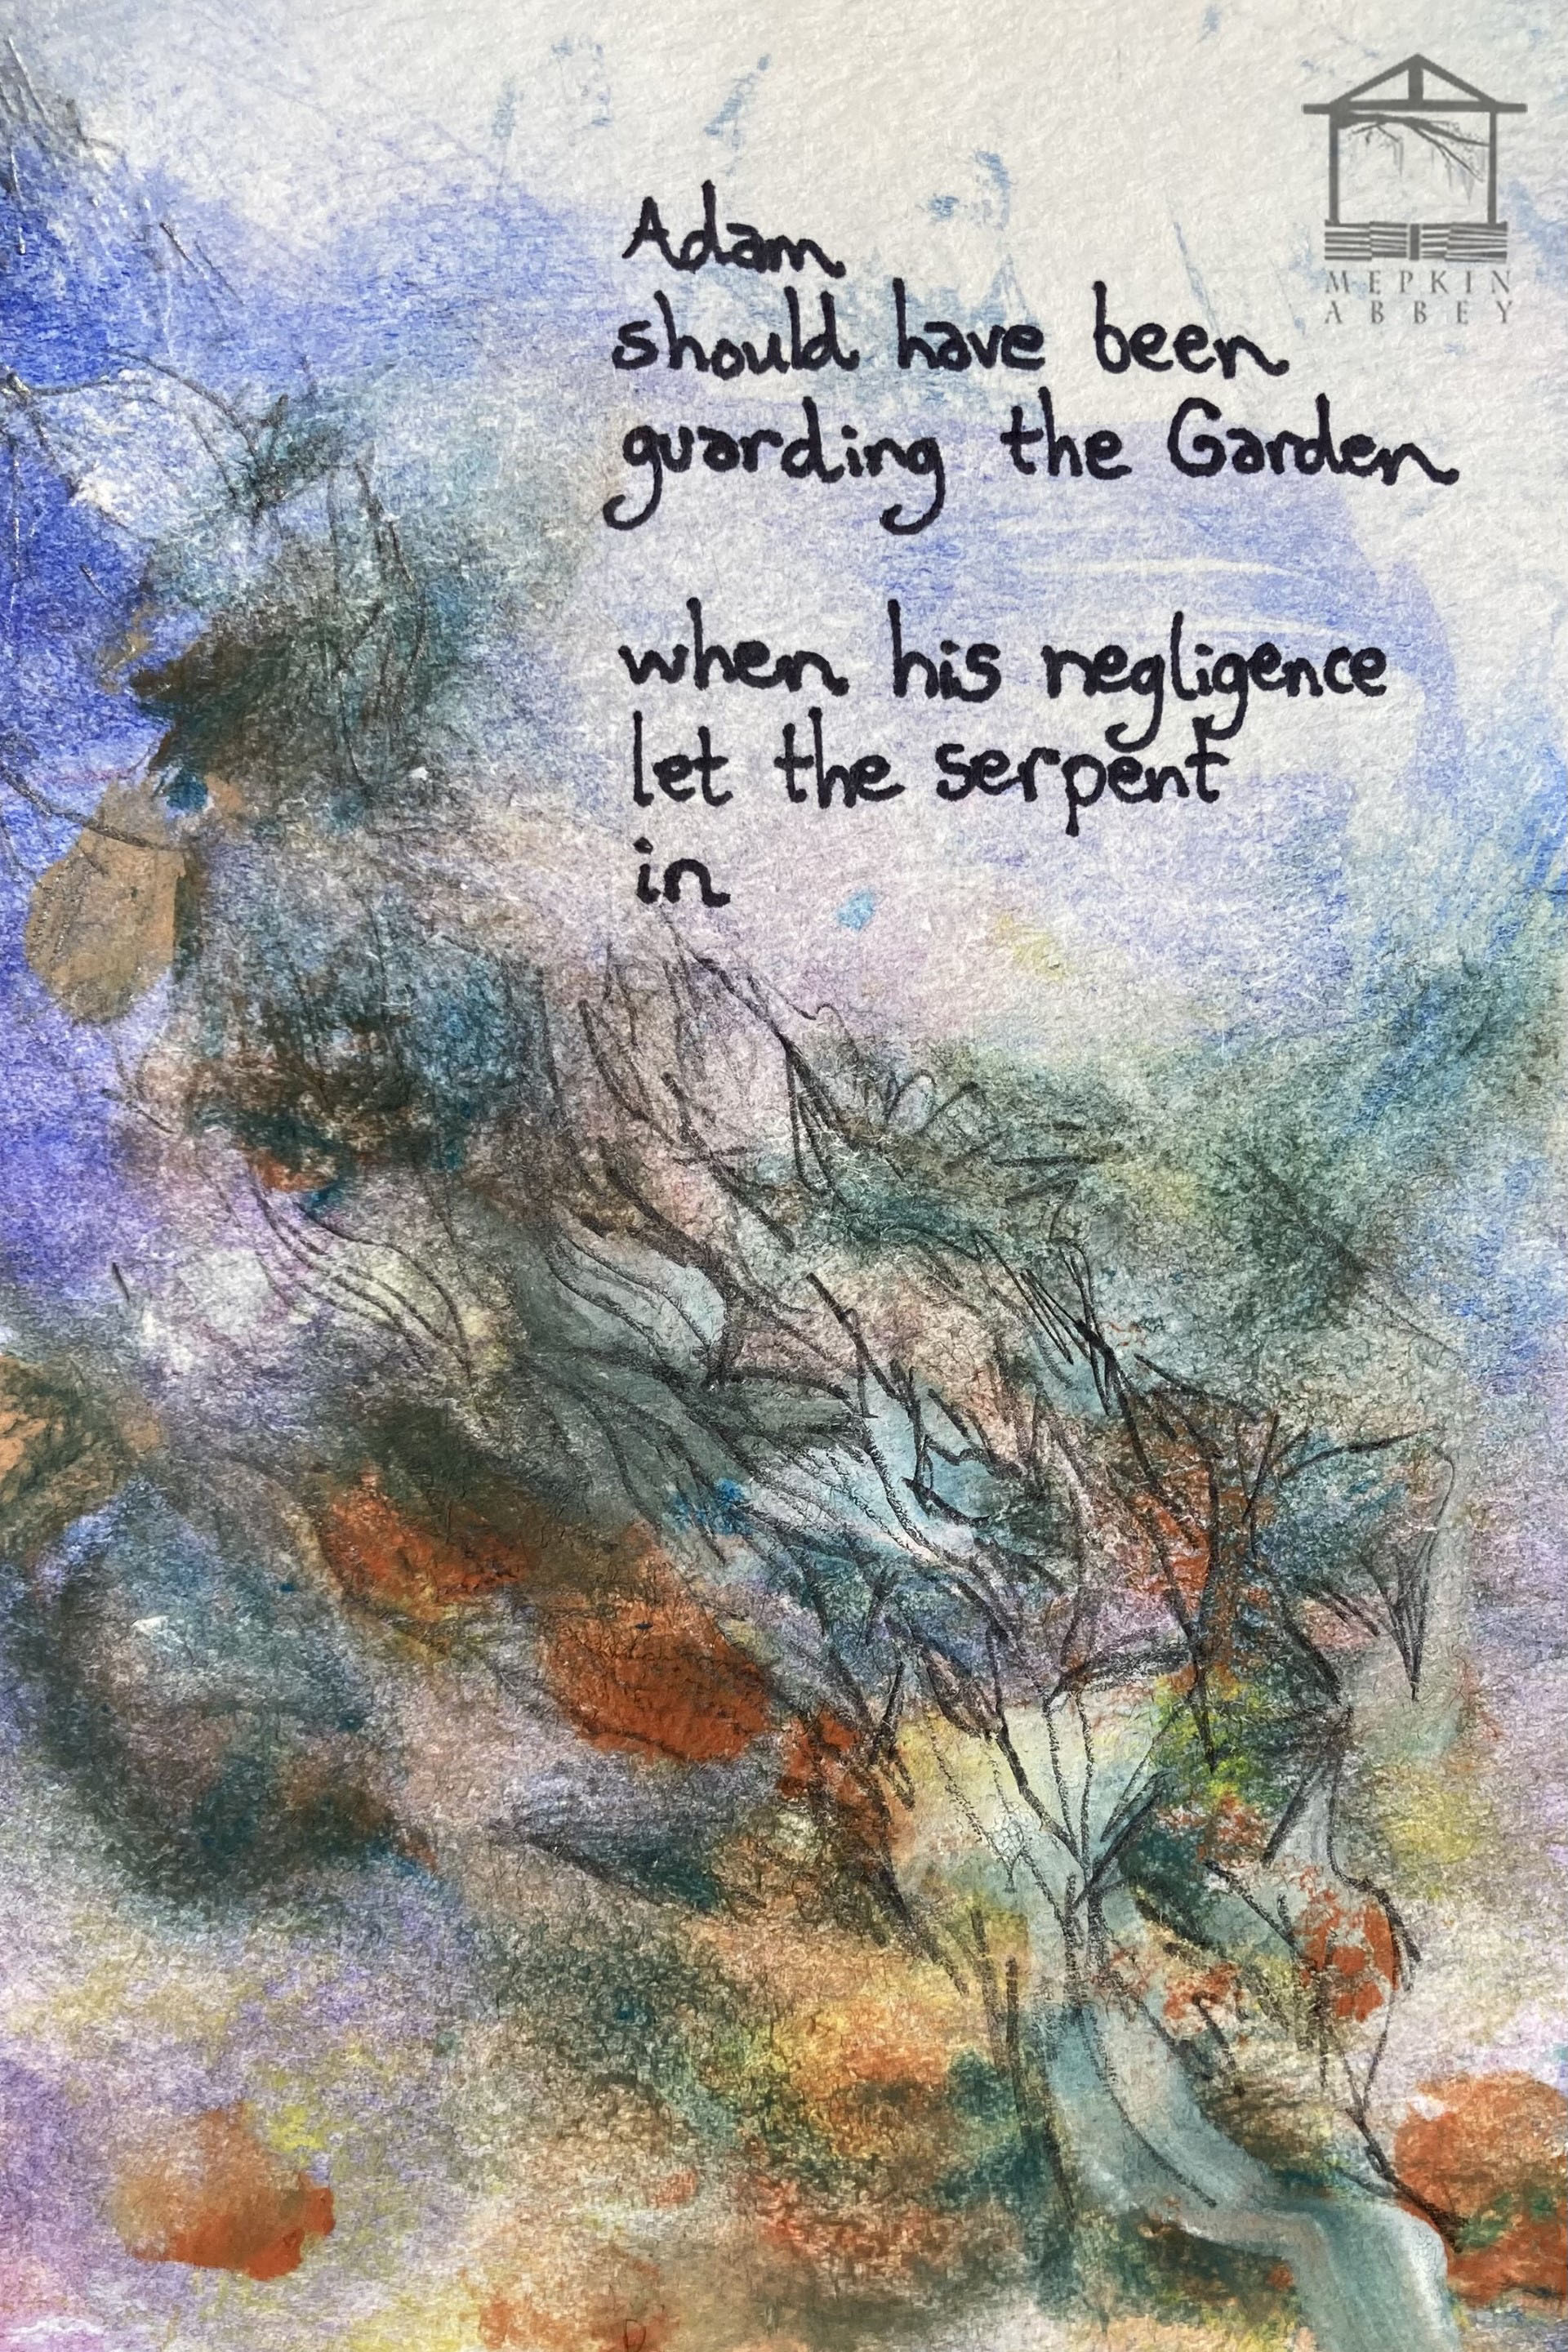 MEPKIN
ABBEY
Adam
should have been
guarding the Garden
when his negligence
let the serpent
in